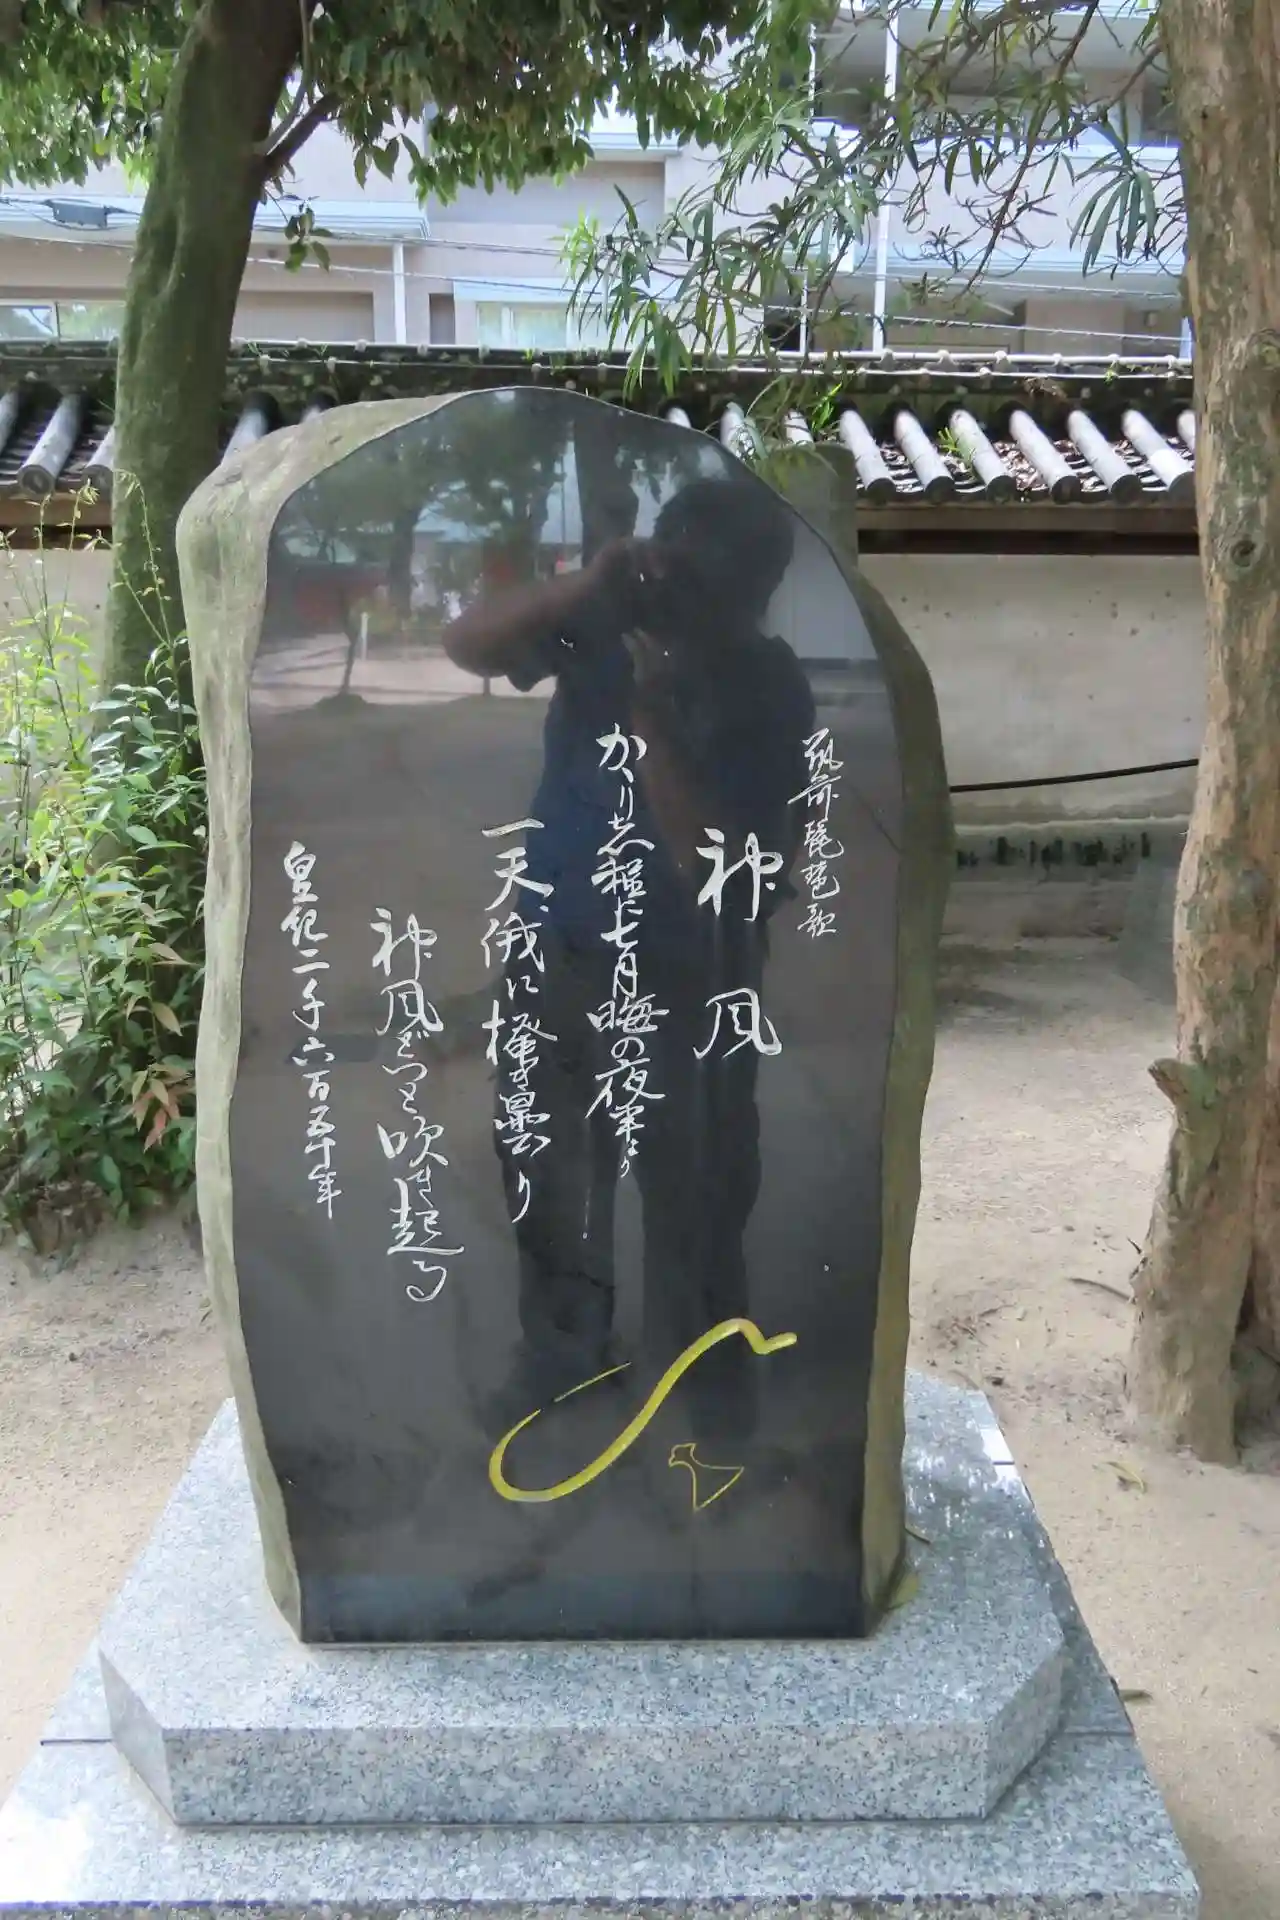 筑前琵琶歌
神風
かゝりし程に七月晦の夜半より
一天俄に掻き曇り
神風どつと吹き起る
皇紀二千六百五十年